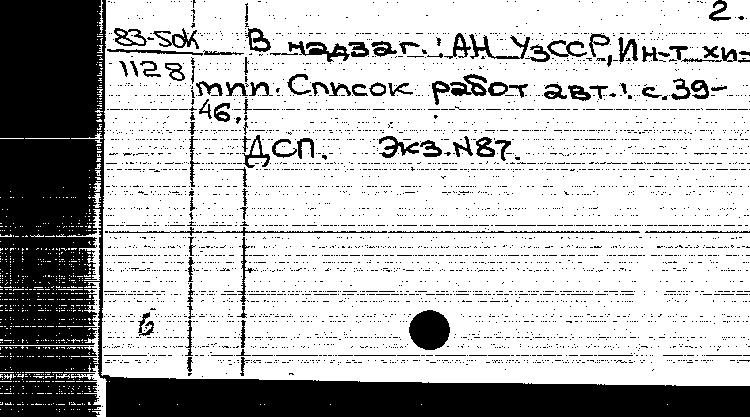 2.
83-50к В надзаг.: АН УзССР, Ин-т хи-
1128 тпп. Список работ авт.: с. 39-
46.
ДСП. Экз. N87.
б